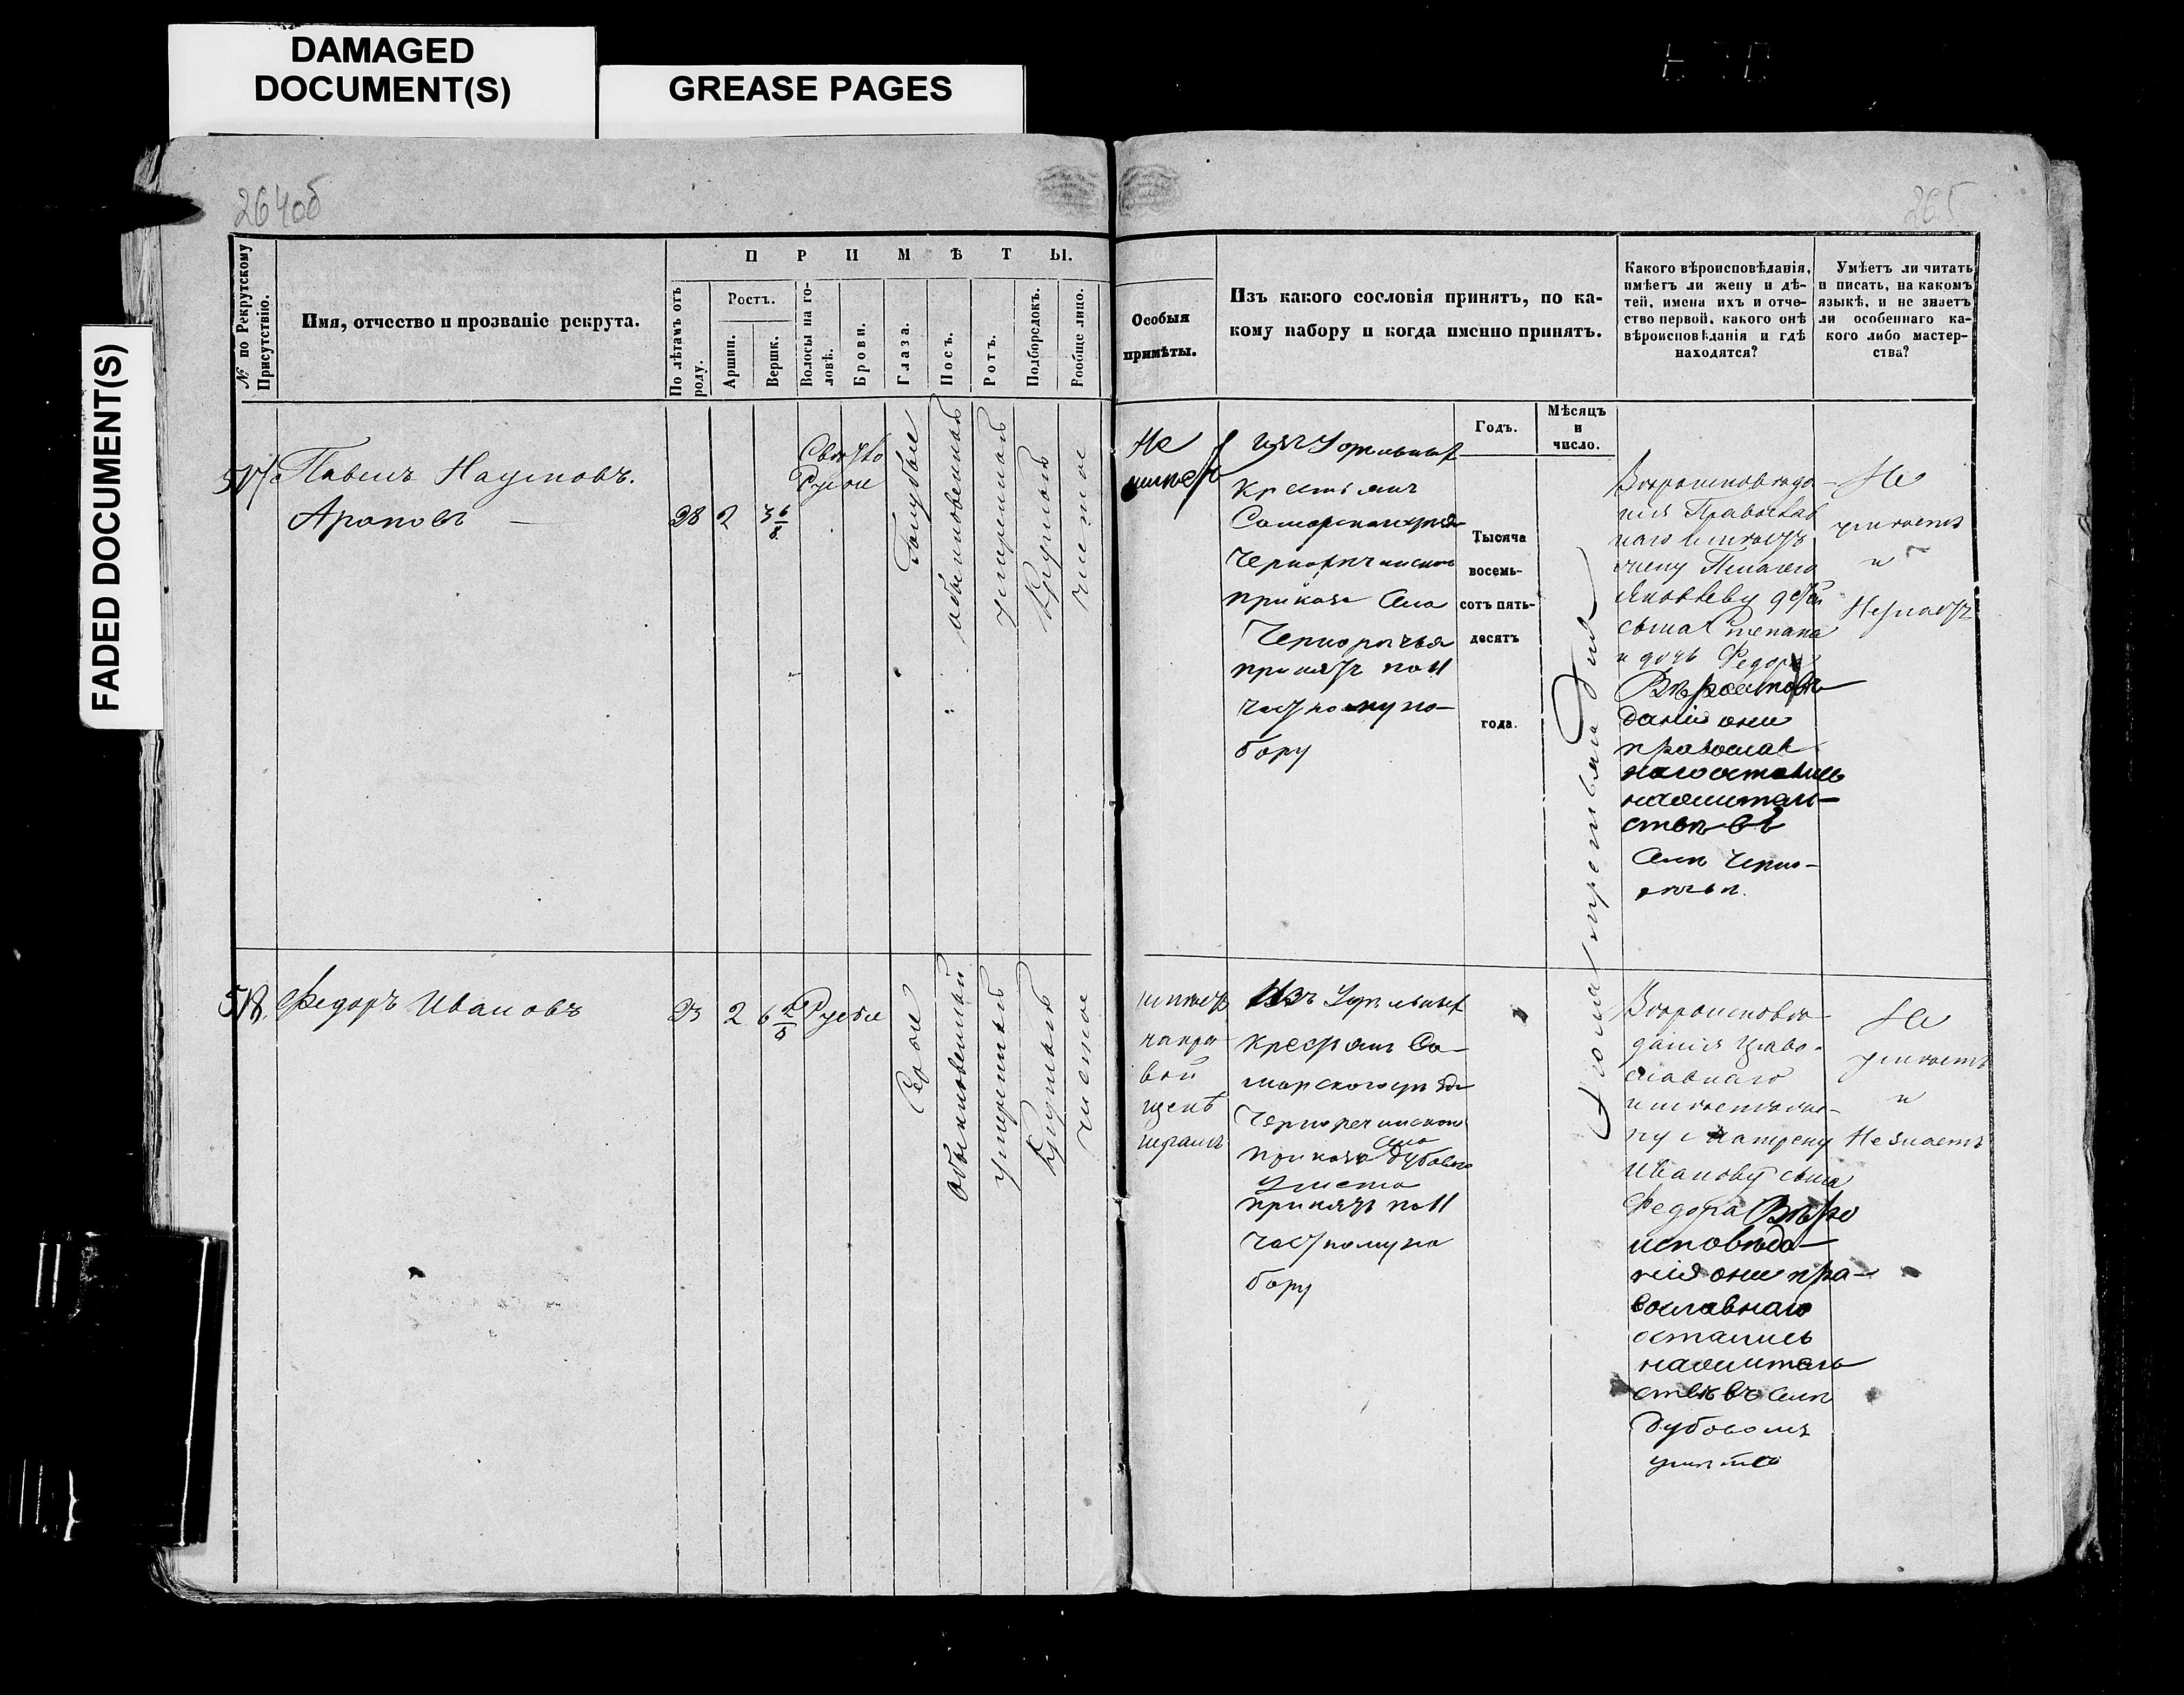 DAMAGED
DOCUMENT(S)
GREASE PAGES
FADED DOCUMENT(S)
264об
265
№ по Рекрутскому
Присутствію.
Имя, отчество и прозваніе рекрута.
П Р И М Ѣ Т Ы.
По лѣтамъ отъ
роду.
Ростъ.
Аршин.
Вершк.
Волосы на го-
ловѣ.
Брови.
Глаза.
Носъ.
Ротъ.
Подбородокъ.
Вообще лицо.
Особыя
примѣты.
Изъ какого сословія принятъ, по ка-
кому набору и когда именно принятъ.
Какого вѣроисповѣданія,
имѣетъ ли жену и дѣ-
тей, имена ихъ и отче-
ство первой, какого онѣ
вѣроисповѣданія и гдѣ
находятся?
Умѣетъ ли читать
и писать, на какомъ
языкѣ, и не знаетъ
ли особеннаго ка-
кого либо мастер-
ства?
Годъ.
Мѣсяцъ
и
число.
517
Павелъ Наумовъ.
Араповъ —
28
2
3 6/8
Светло
Русые
Голубые
обыкновенный
умеренный
Круглый
чистое
Не
имеетъ
изъ Удельныхъ
крестьянъ
Самарскаго уезда
Чернореченскаго
приказа Села
Черноречья
принятъ по 11
частному на-
бору
Тысяча
восемь-
сотъ пять-
десятъ
года.
Вероисповеда-
нія Православ
наго имеетъ
жену Пелагею
Яковлеву детей
сына Степана
и дочь Федору
Вѣроисповѣ-
данія они
православ
наго остались
на жительст-
ствѣ въ
Селѣ Черно-
речьи.
Не
умеетъ
и
Незнаетъ
518
Федоръ Ивановъ
23
2
Русые
Серые
Обыкновенный
умеренный
Круглый
чистое
имеетъ
на пра-
вой
щекѣ
шрамъ
Изъ Удельныхъ
крестьянъ Са-
марского уезда
Чернореченского
приказа Села Дубового
Умета
принятъ по 11
частному на
бору
Вероисповѣ-
данія право-
славнаго
имеетъ же-
ну Матрену
Иванову сына
Федора Вѣро
исповѣда-
нія они пра-
вославнаго
остались
на житель
ствѣ въ Селѣ
Дубовомъ
уметѣ
Не
умеетъ
и
Не знаетъ